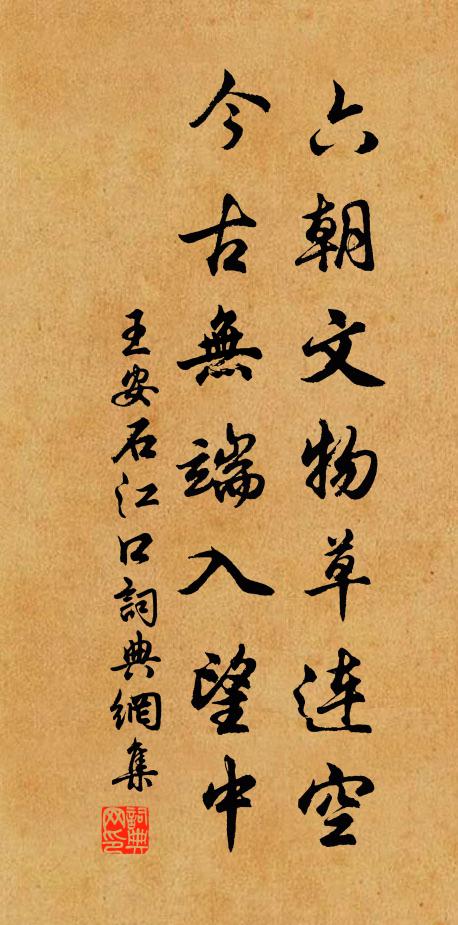 六朝文物草連空
今古無端入望中
王安石江口詞典網集
詞典网印